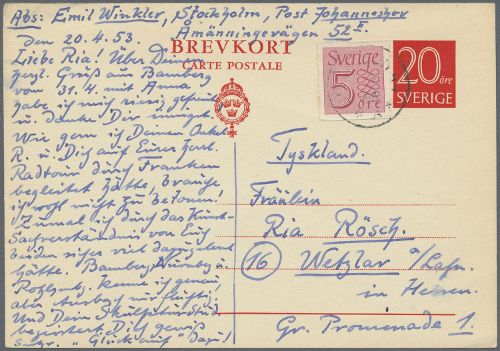 Abs: Emil Winkler, Stockholm, Post Johanneshov
Amänningevägen 52
den 20.4.53.
BREVKORT
CARTE POSTALE
Sverige
5
öre
20 öre
SVERIGE
Liebe Ria! Über Deinen
herzl. Gruß aus Bamberg
vom 31.4. mit Anna
habe ich mich riesig gefreut
u. danke Dir innigst.
Wie gern ich Deinen Onkel
R. u. Dich auf Eurer
Radtour durch Franken
begleitet hätte, brauche
ich wohl nicht zu betonen.
Zumal ich durch das Kunst-
Sachverständnis von Euch
beiden sicher viel dazugelernt
hätte. Bamberg, Nürnberg u.
Rothenbg. kenne ich genau,
aber nur flüchtig.
Und Dein
begeistert Dich gewiß
s. gr. "Glück auf" dazu!
Tyskland.
Fräulein
Ria Rösch.
16 Wetzlar a/Lahn.
in Hessen.
Gr. Promenade 1.